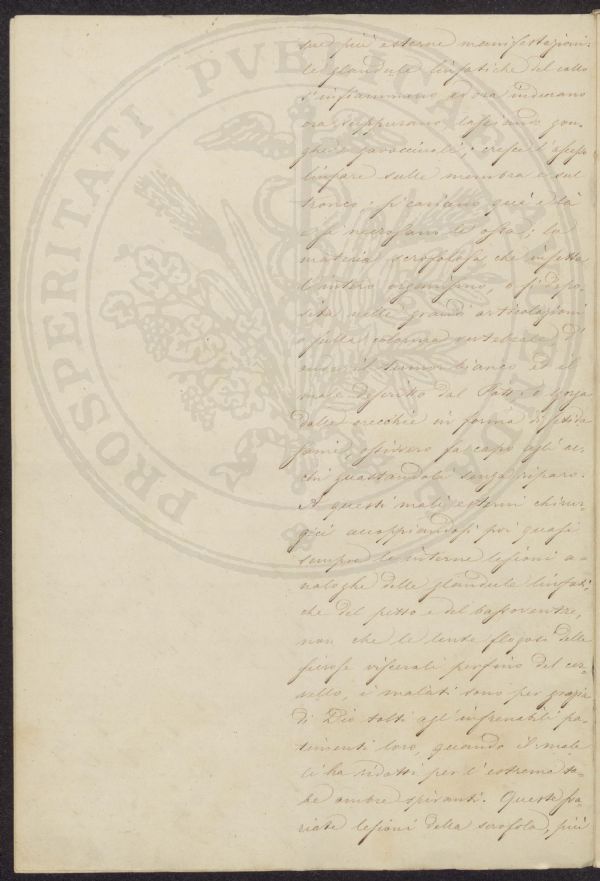 sue più esterne manifestazioni.
le glandule linfatiche del collo
s'infiammano, ed ora indurano
ora suppurano, lasciando gon-
ghe e gavoccioli; cresce l'aspo
linfare sulle membra e sul
tronco: si cariano quà e là
e si necrosano le ossa; la
materia scrofolosa che infetta
l'intero organismo, o si depo-
sita nelle grandi articolazioni
o sulla colonna vertebrale, d'
onde il tumor bianco ed il
male descritto dal Pott; o sgorga
dalle orecchie in forma di fetida
sanie, ossivvero fa capo agli oc-
chi guastandoli senza riparo.
A questi mali esterni chirur-
gici accoppiandosi poi quasi
sempre le interne lesioni a-
naloghe delle glandule linfati-
che del petto e del bassoventre,
non che le lente flogosi delle
sierose viscerali perfino del cer-
vello, i malati sono per grazia
di Dio tolti agl'infrenabili pa-
timenti loro, quando il male
li ha ridotti per l'estrema ta-
be ombre spiranti. Queste sva-
riate lesioni della scrofola, più
PROSPERITATI PVBLICAE